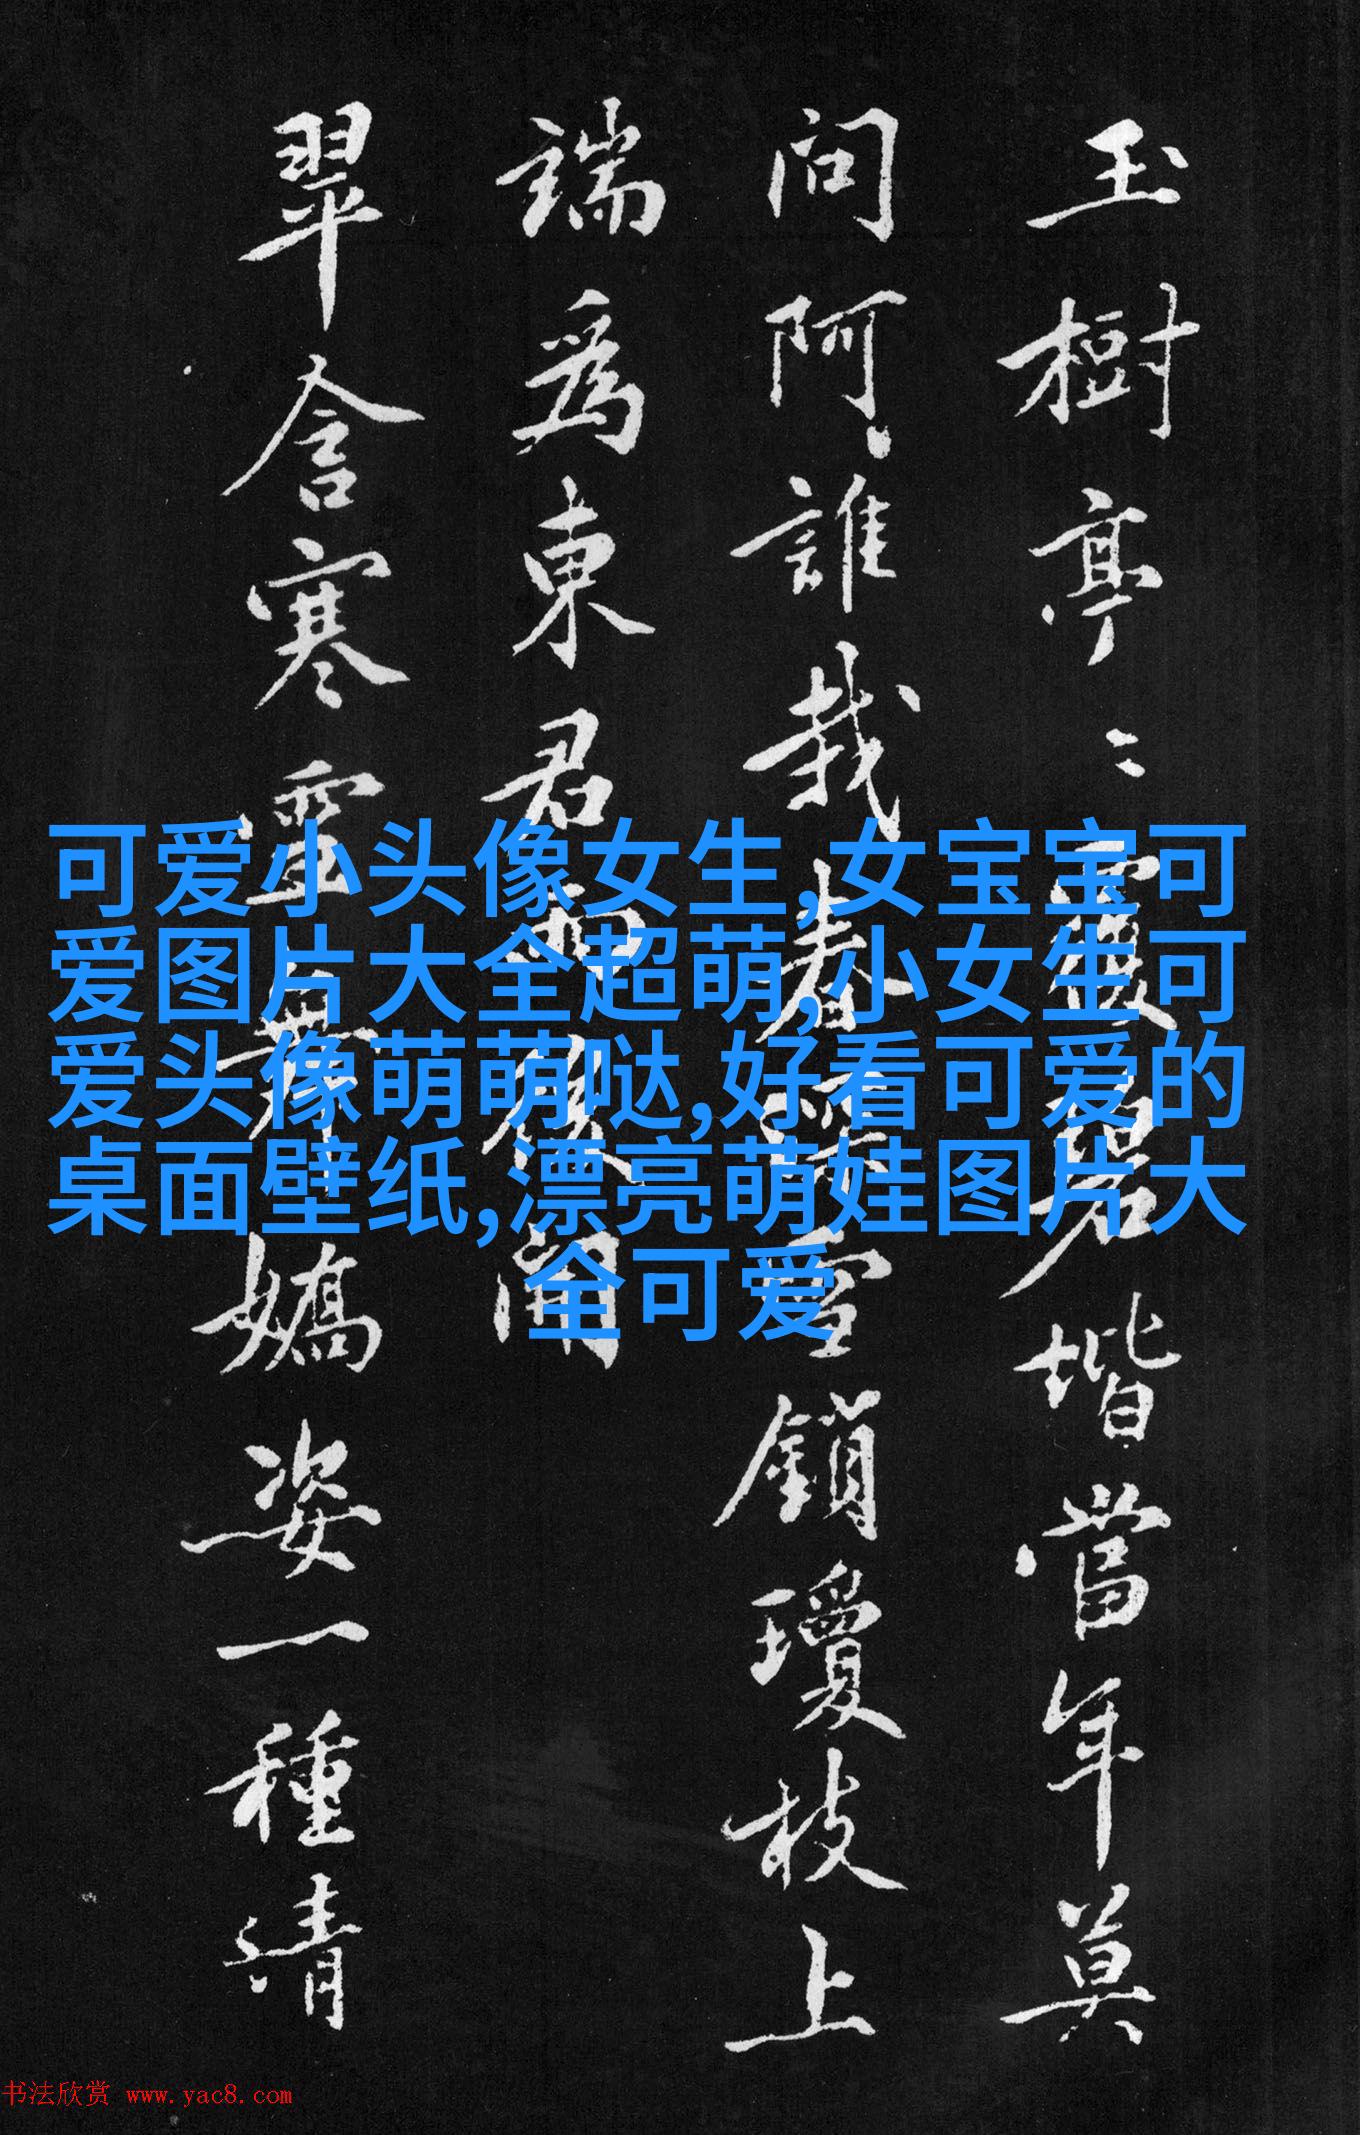 玉樹亭〻覆碧堦當年莫
問阿誰栽春雪鎖瓊枝上
端爲東君雨後開
翠含寒露舞嬌姿一種清
可爱小头像女生,女宝宝可
爱图片大全超萌,小女生可
爱头像萌萌哒,好看可爱的
桌面壁纸,漂亮萌娃图片大
全可爱
书法欣赏 www.yac8.com